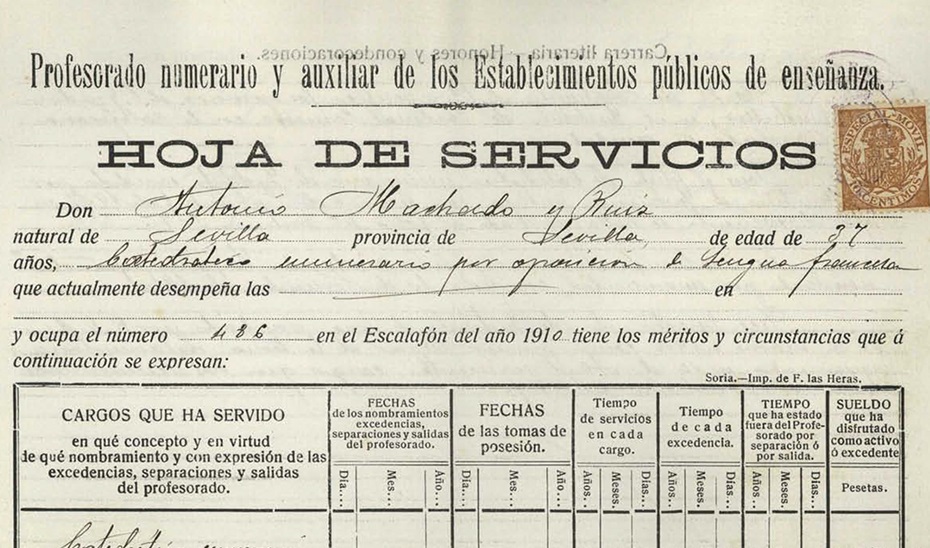 Carrera literaria.—Honores y condecoraciones.
Profesorado numerario y auxiliar de los Establecimientos públicos de enseñanza.
HOJA DE SERVICIOS
ESPECIAL MOVIL
CENTIMOS
Don Antonio Machado y Ruiz
natural de Sevilla provincia de Sevilla, de edad de 37
años, Catedratico numerario por oposicion de Lengua francesa
que actualmente desempeña las en
y ocupa el número 436 en el Escalafón del año 1910 tiene los méritos y circunstancias que á
continuación se expresan:
Soria.—Imp. de F. las Heras.
CARGOS QUE HA SERVIDO
en qué concepto y en virtud
de qué nombramiento y con expresión de las
excedencias, separaciones y salidas
del profesorado.
FECHAS
de los nombramientos
excedencias,
separaciones y salidas
del profesorado.
Día... Mes... Año...
FECHAS
de las tomas de
posesión.
Día... Mes... Año...
Tiempo
de servicios
en cada
cargo.
Años... Meses... Días...
Tiempo
de cada
excedencia.
Años... Meses... Días...
TIEMPO
que ha estado
fuera del Profe-
sorado por
separación ó
por salida.
Años... Meses... Días...
SUELDO
que ha
disfrutado
como activo
ó excedente
Pesetas.